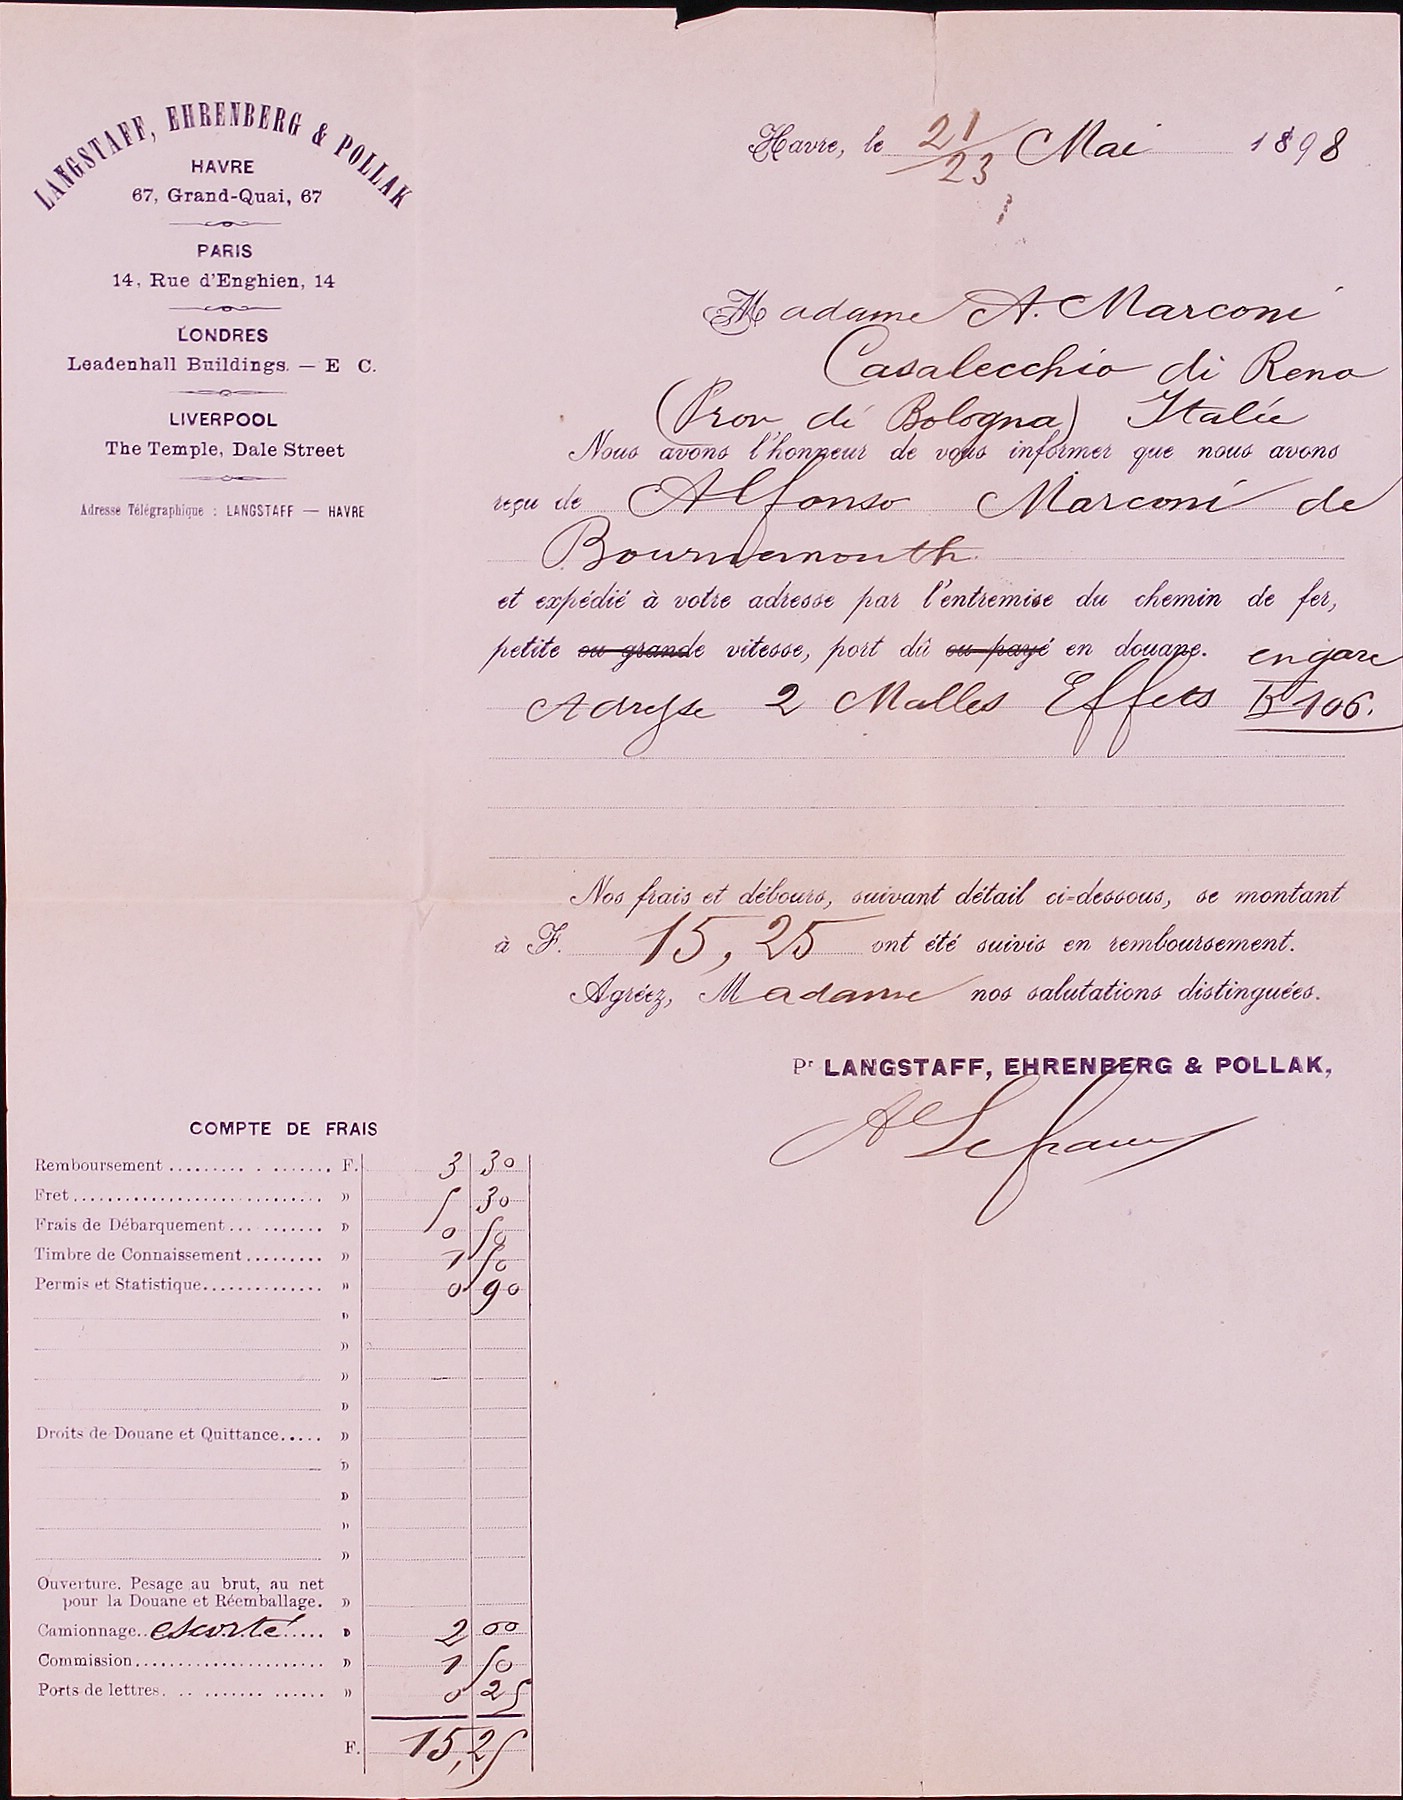 LANGSTAFF, EHRENBERG & POLLAK
HAVRE
67, Grand-Quai, 67
PARIS
14, Rue d'Enghien, 14
LONDRES
Leadenhall Buildings. — E C.
LIVERPOOL
The Temple, Dale Street
Adresse Télégraphique : LANGSTAFF — HAVRE
Havre, le 21/23 Mai 1898
Madame A. Marconi
Casalecchio di Reno
(Prov di Bologna) Italie
Nous avons l'honneur de vous informer que nous avons
reçu de Alfonso Marconi de
Bournemouth
et expédié à votre adresse par l'entremise du chemin de fer,
petite ou grande vitesse, port dû ou payé en douane. en gare
Adresse 2 Malles Effets K 106.
Nos frais et débours, suivant détail ci-dessous, se montant
à F. 15,25 ont été suivis en remboursement.
Agréez, Madame nos salutations distinguées.
Pr LANGSTAFF, EHRENBERG & POLLAK,
COMPTE DE FRAIS
Remboursement F. 3 30
Fret » 5 30
Frais de Débarquement » 0 50
Timbre de Connaissement » 1 50
Permis et Statistique » 0 90
»
»
»
»
Droits de Douane et Quittance »
»
»
»
»
Ouverture. Pesage au brut, au net
pour la Douane et Réemballage. »
Camionnage escorté » 2 00
Commission » 1 50
Ports de lettres » 0 25
F. 15,25